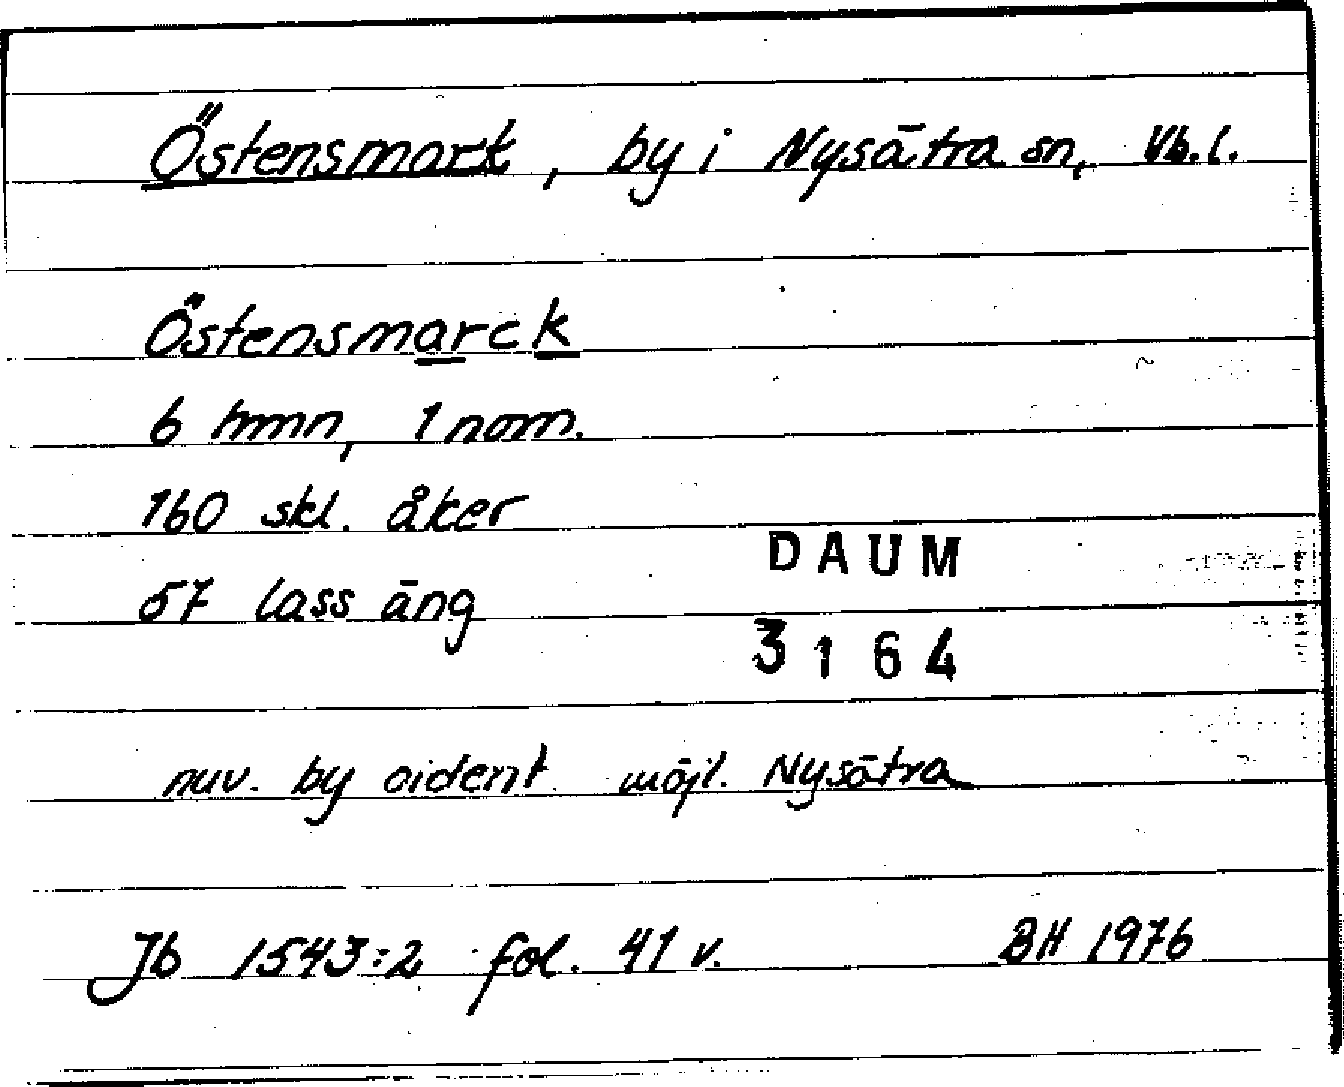 Östensmark, by i Nysätra sn, Vb.l.
Östensmarck
6 hmn, 1 nom.
160 skl. åker
57 lass äng
DAUM
3164
nuv. by oident. möjl. Nysätra
Jb 1543:2 fol. 41 v. BH 1976